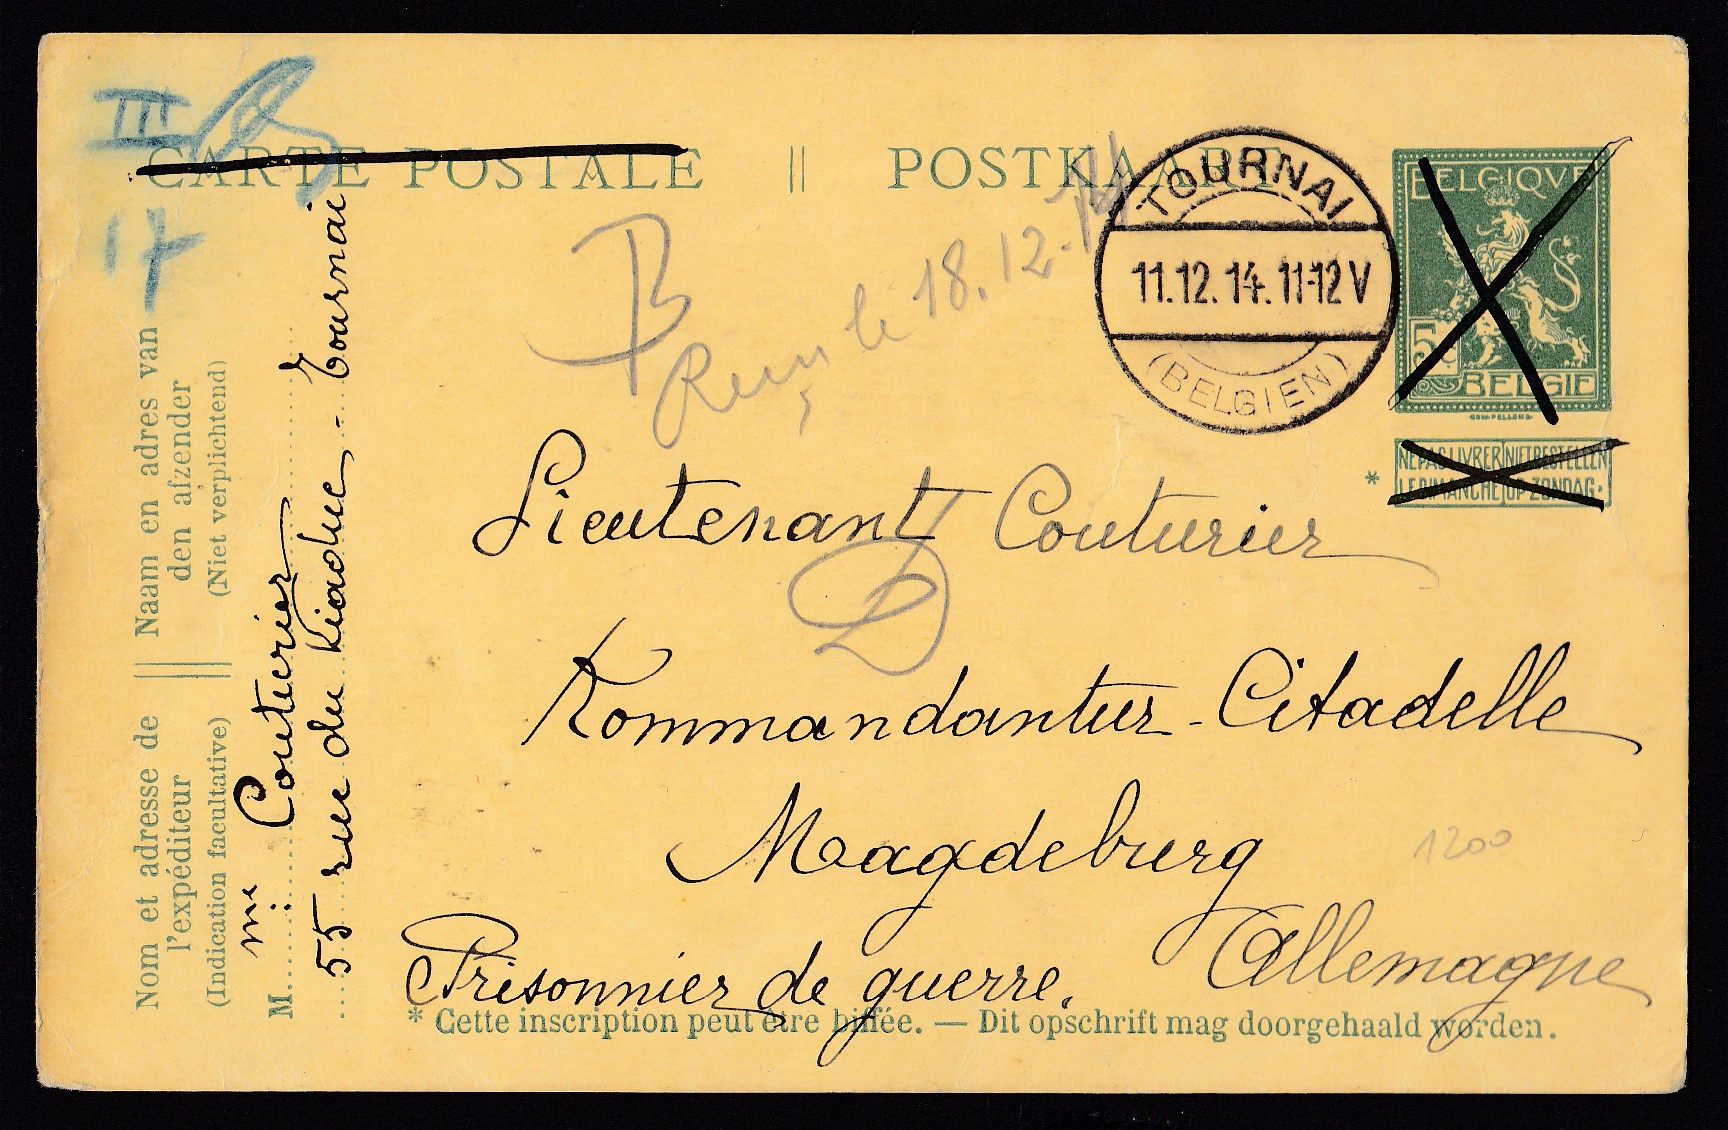 III
17
CARTE POSTALE || POSTKAART
TOURNAI
11.12.14.11-12 V
(BELGIEN)
BELGIQVE
5c
BELGIË
NE PAS LIVRER NIET BESTELLEN
LE DIMANCHE OP ZONDAG.
*
B
le 18.12.14
Lieutenant Couturier
D
Kommandantur - Citadelle
Magdeburg
1200
Allemagne
Prisonnier de guerre.
* Cette inscription peut être biffée. — Dit opschrift mag doorgehaald worden.
Naam en adres van
den afzender
(Niet verplichtend)
Nom et adresse de
l'expéditeur
(Indication facultative)
M. Couturier
55 rue du Viaduc - Tournai